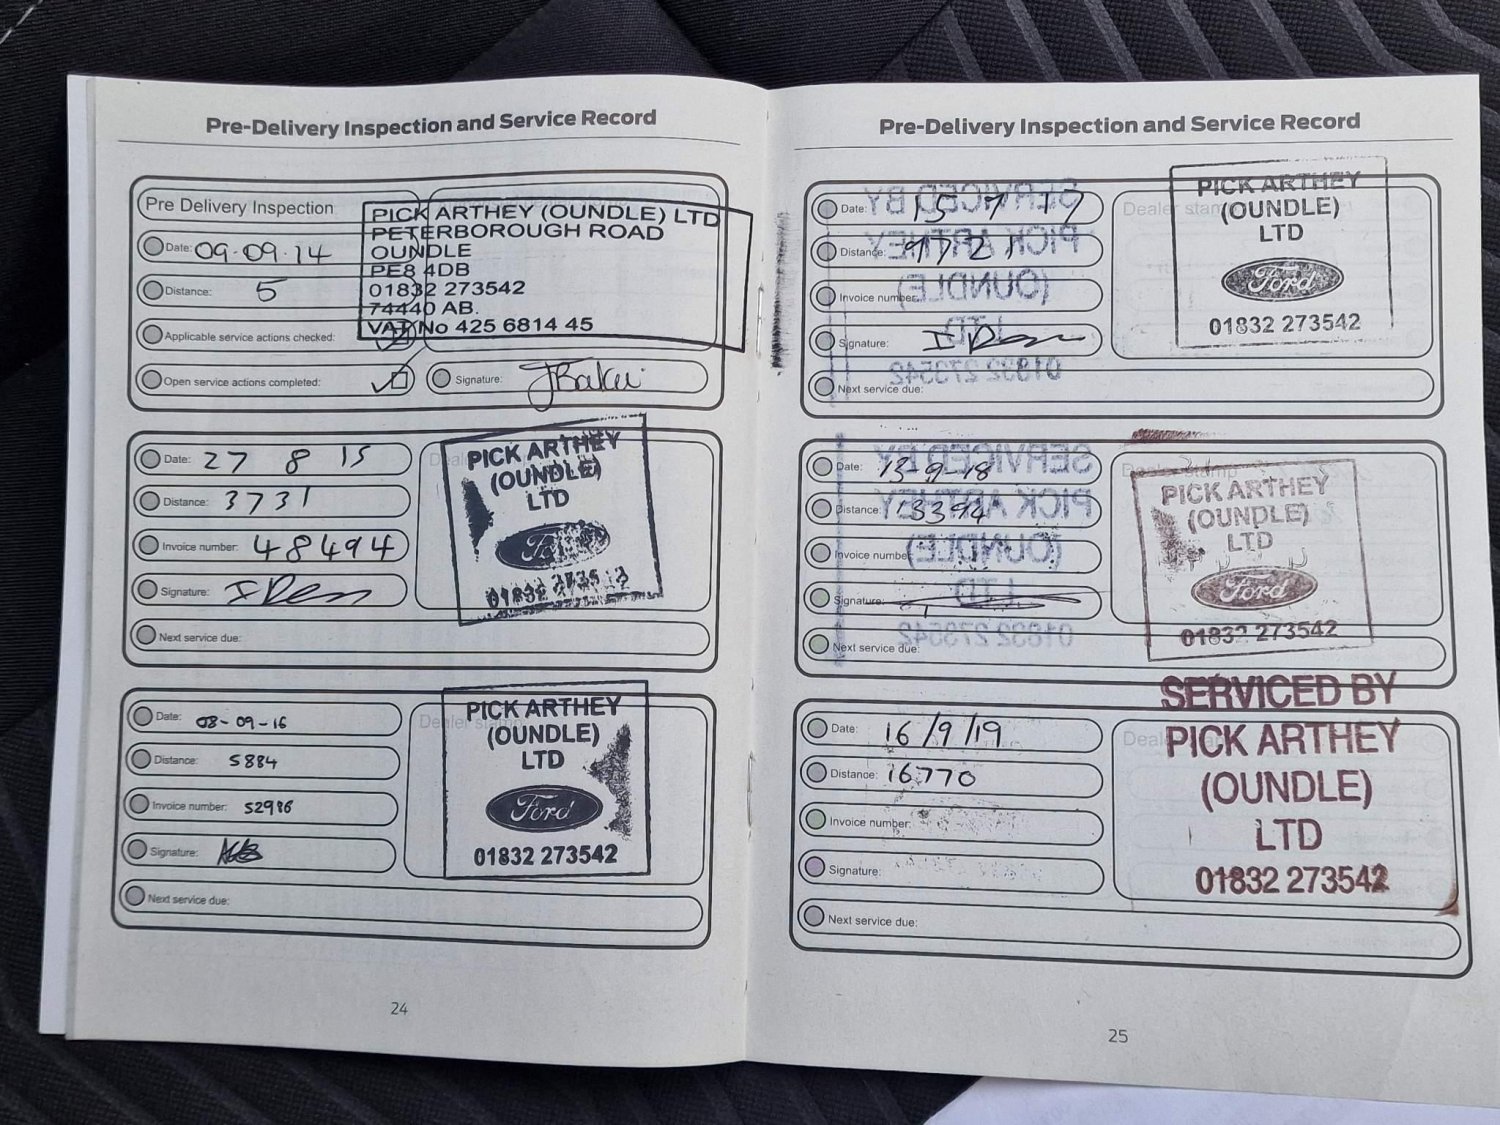 Pre-Delivery Inspection and Service Record
Pre Delivery Inspection
Date: 09·09·14
Distance: 5
Applicable service actions checked:
Open service actions completed:
Signature: JBaker
PICK ARTHEY (OUNDLE) LTD
PETERBOROUGH ROAD
OUNDLE
PE8 4DB
01832 273542
74440 AB.
VAT No 425 6814 45
Date: 27 8 15
Distance: 3731
Invoice number: 48494
Signature:
Next service due:
PICK ARTHEY
(OUNDLE)
LTD
Ford
01832 273542
Date: 08-09-16
Distance: 5884
Invoice number: 52986
Signature:
Next service due:
Dealer stamp
PICK ARTHEY
(OUNDLE)
LTD
Ford
01832 273542
24
Pre-Delivery Inspection and Service Record
Date: 15 7 17
Distance:
Invoice number:
Signature:
Next service due:
Dealer stamp
PICK ARTHEY
(OUNDLE)
LTD
Ford
01832 273542
SERVICED BY
PICK ARTHEY
(OUNDLE)
LTD
01832 273542
Date: 13-9-18
Distance: 13394
Invoice number
Signature:
Next service due:
Dealer stamp
PICK ARTHEY
(OUNDLE)
LTD
Ford
01832 273542
SERVICED BY
PICK ARTHEY
(OUNDLE)
LTD
01832 273542
Date: 16/9/19
Distance: 16770
Invoice number:
Signature:
Next service due:
SERVICED BY
PICK ARTHEY
(OUNDLE)
LTD
01832 273542
25